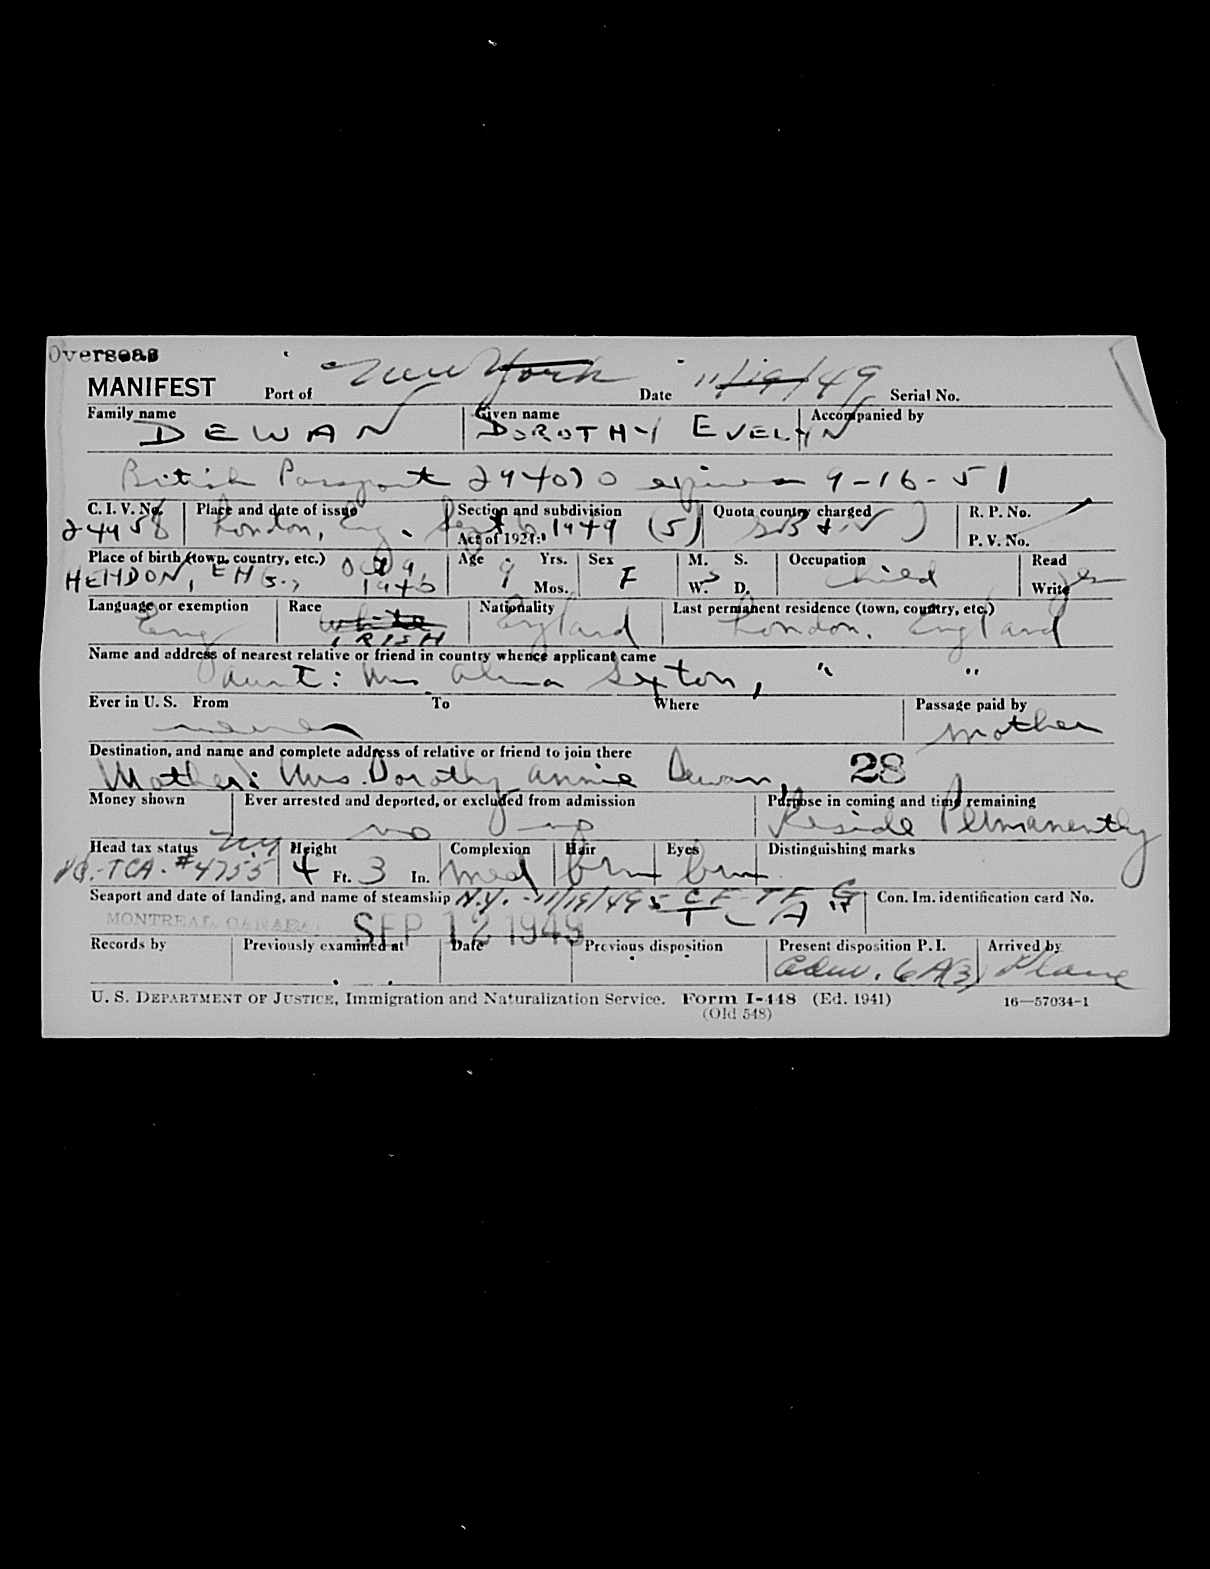 Overseas
MANIFEST Port of New York Date 11/19/49 Serial No.
Family name Given name Accompanied by
DEWAN DOROTHY EVELYN
British Passport 294070 expires 9-16-51
C. I. V. No. Place and date of issue Section and subdivision Quota country charged R. P. No.
24458 London, Eng. Sept 6 1949 (5)
Act of 1924: P. V. No.
Place of birth (town, country, etc.) Age Yrs. Sex M. S. Occupation Read
HENDON, ENG., Oct 9, 1940 9 Mos. F W. D. Child Write yes
Language or exemption Race Nationality Last permanent residence (town, country, etc.)
Eng white England London, England
IRISH
Name and address of nearest relative or friend in country whence applicant came
aunt: Mrs. Alma Sexton, " "
Ever in U. S. From To Where Passage paid by
never mother
Destination, and name and complete address of relative or friend to join there
Mother: Mrs. Dorothy Annie Dewan, 28
Money shown Ever arrested and deported, or excluded from admission Purpose in coming and time remaining
no no Reside Permanently
Head tax status NY Height Complexion Hair Eyes Distinguishing marks
TCA. #4755 4 Ft. 3 In. med brn brn
Seaport and date of landing, and name of steamship N.Y. - 11/19/49 Con. Im. identification card No.
MONTREAL, CANADA SEP 12 1949
Records by Previously examined at Date Previous disposition Present disposition P. I. Arrived by
adm. 6A(3) Plane
U. S. DEPARTMENT OF JUSTICE, Immigration and Naturalization Service. Form I-448 (Ed. 1941) 16—57034-1
(Old 548)